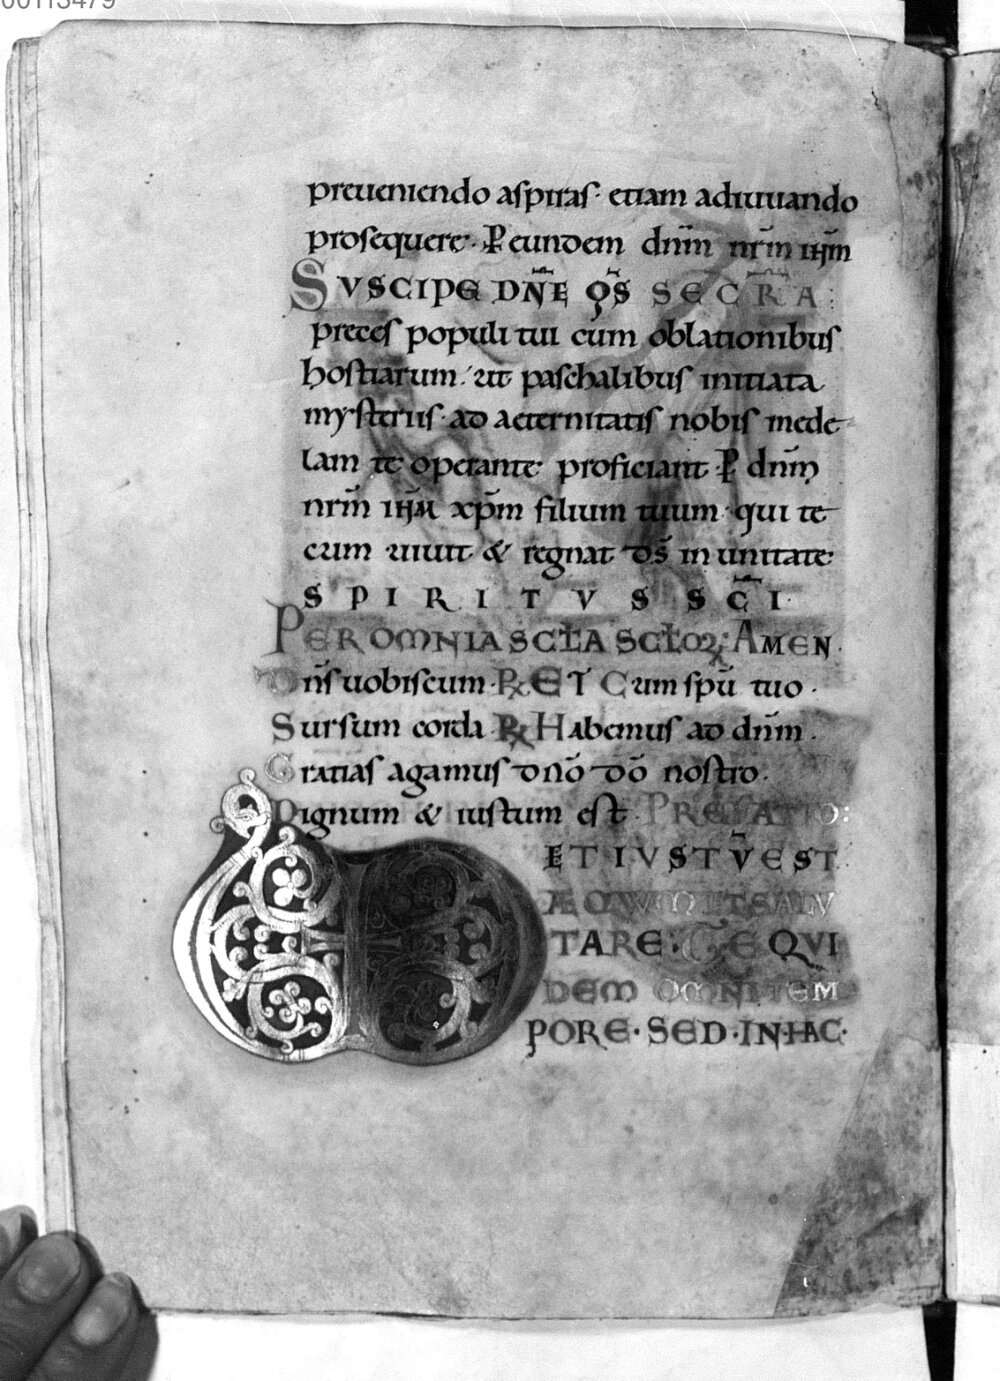 00113479
preueniendo aspiras· etiam adiuuando
prosequere· P̄ eundem dnm̄ nrm̄ iħm̄
SVSCIPE DN̄E Q̄S SECRA:
preces populi tui cum oblationibus
hostiarum· ut paschalibus initiata
mysteriis· ad aeternitatis nobis mede
lam te operante· proficiant· P̄ dnm̄
nrm̄ iħm xp̄m filium tuum· qui te
cum uiuit & regnat· d̄s in unitate
SPIRITVS SC̄I·
PER OMNIA SCŁA SCŁOꝜ: AMEN·
Dn̄s uobiscum· ℞ ET Cum spū tuo·
Sursum corda· ℞ Habemus ad dnm̄·
Gratias agamus dnō dō nostro·
Dignum & iustum est· PREFATIO:
ET IVSTV̄ EST
ÆQVVM ET SALV
TARE: TE QVI
DEM OMNI TEM
PORE· SED· IN HAC·